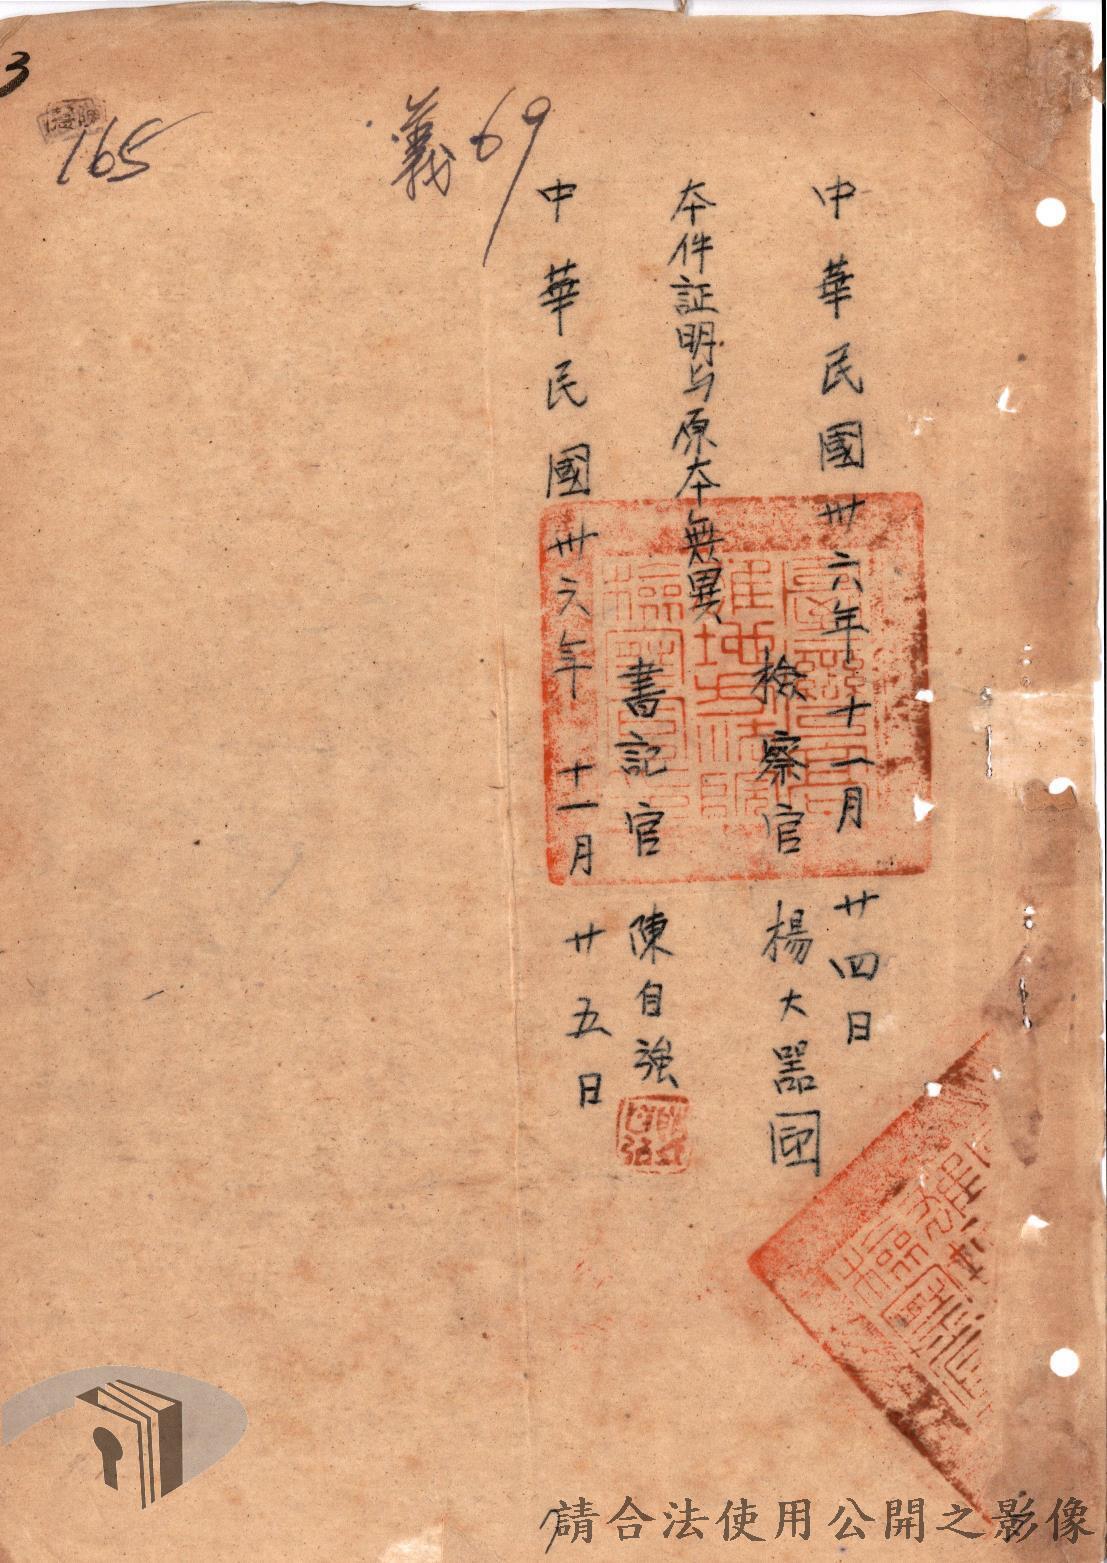 中華民國卅六年十一月廿四日
檢察官 楊大器
本件証明与原本無異
書記官 陳自強
中華民國卅六年十一月廿五日
義69
165
3
請合法使用公開之影像